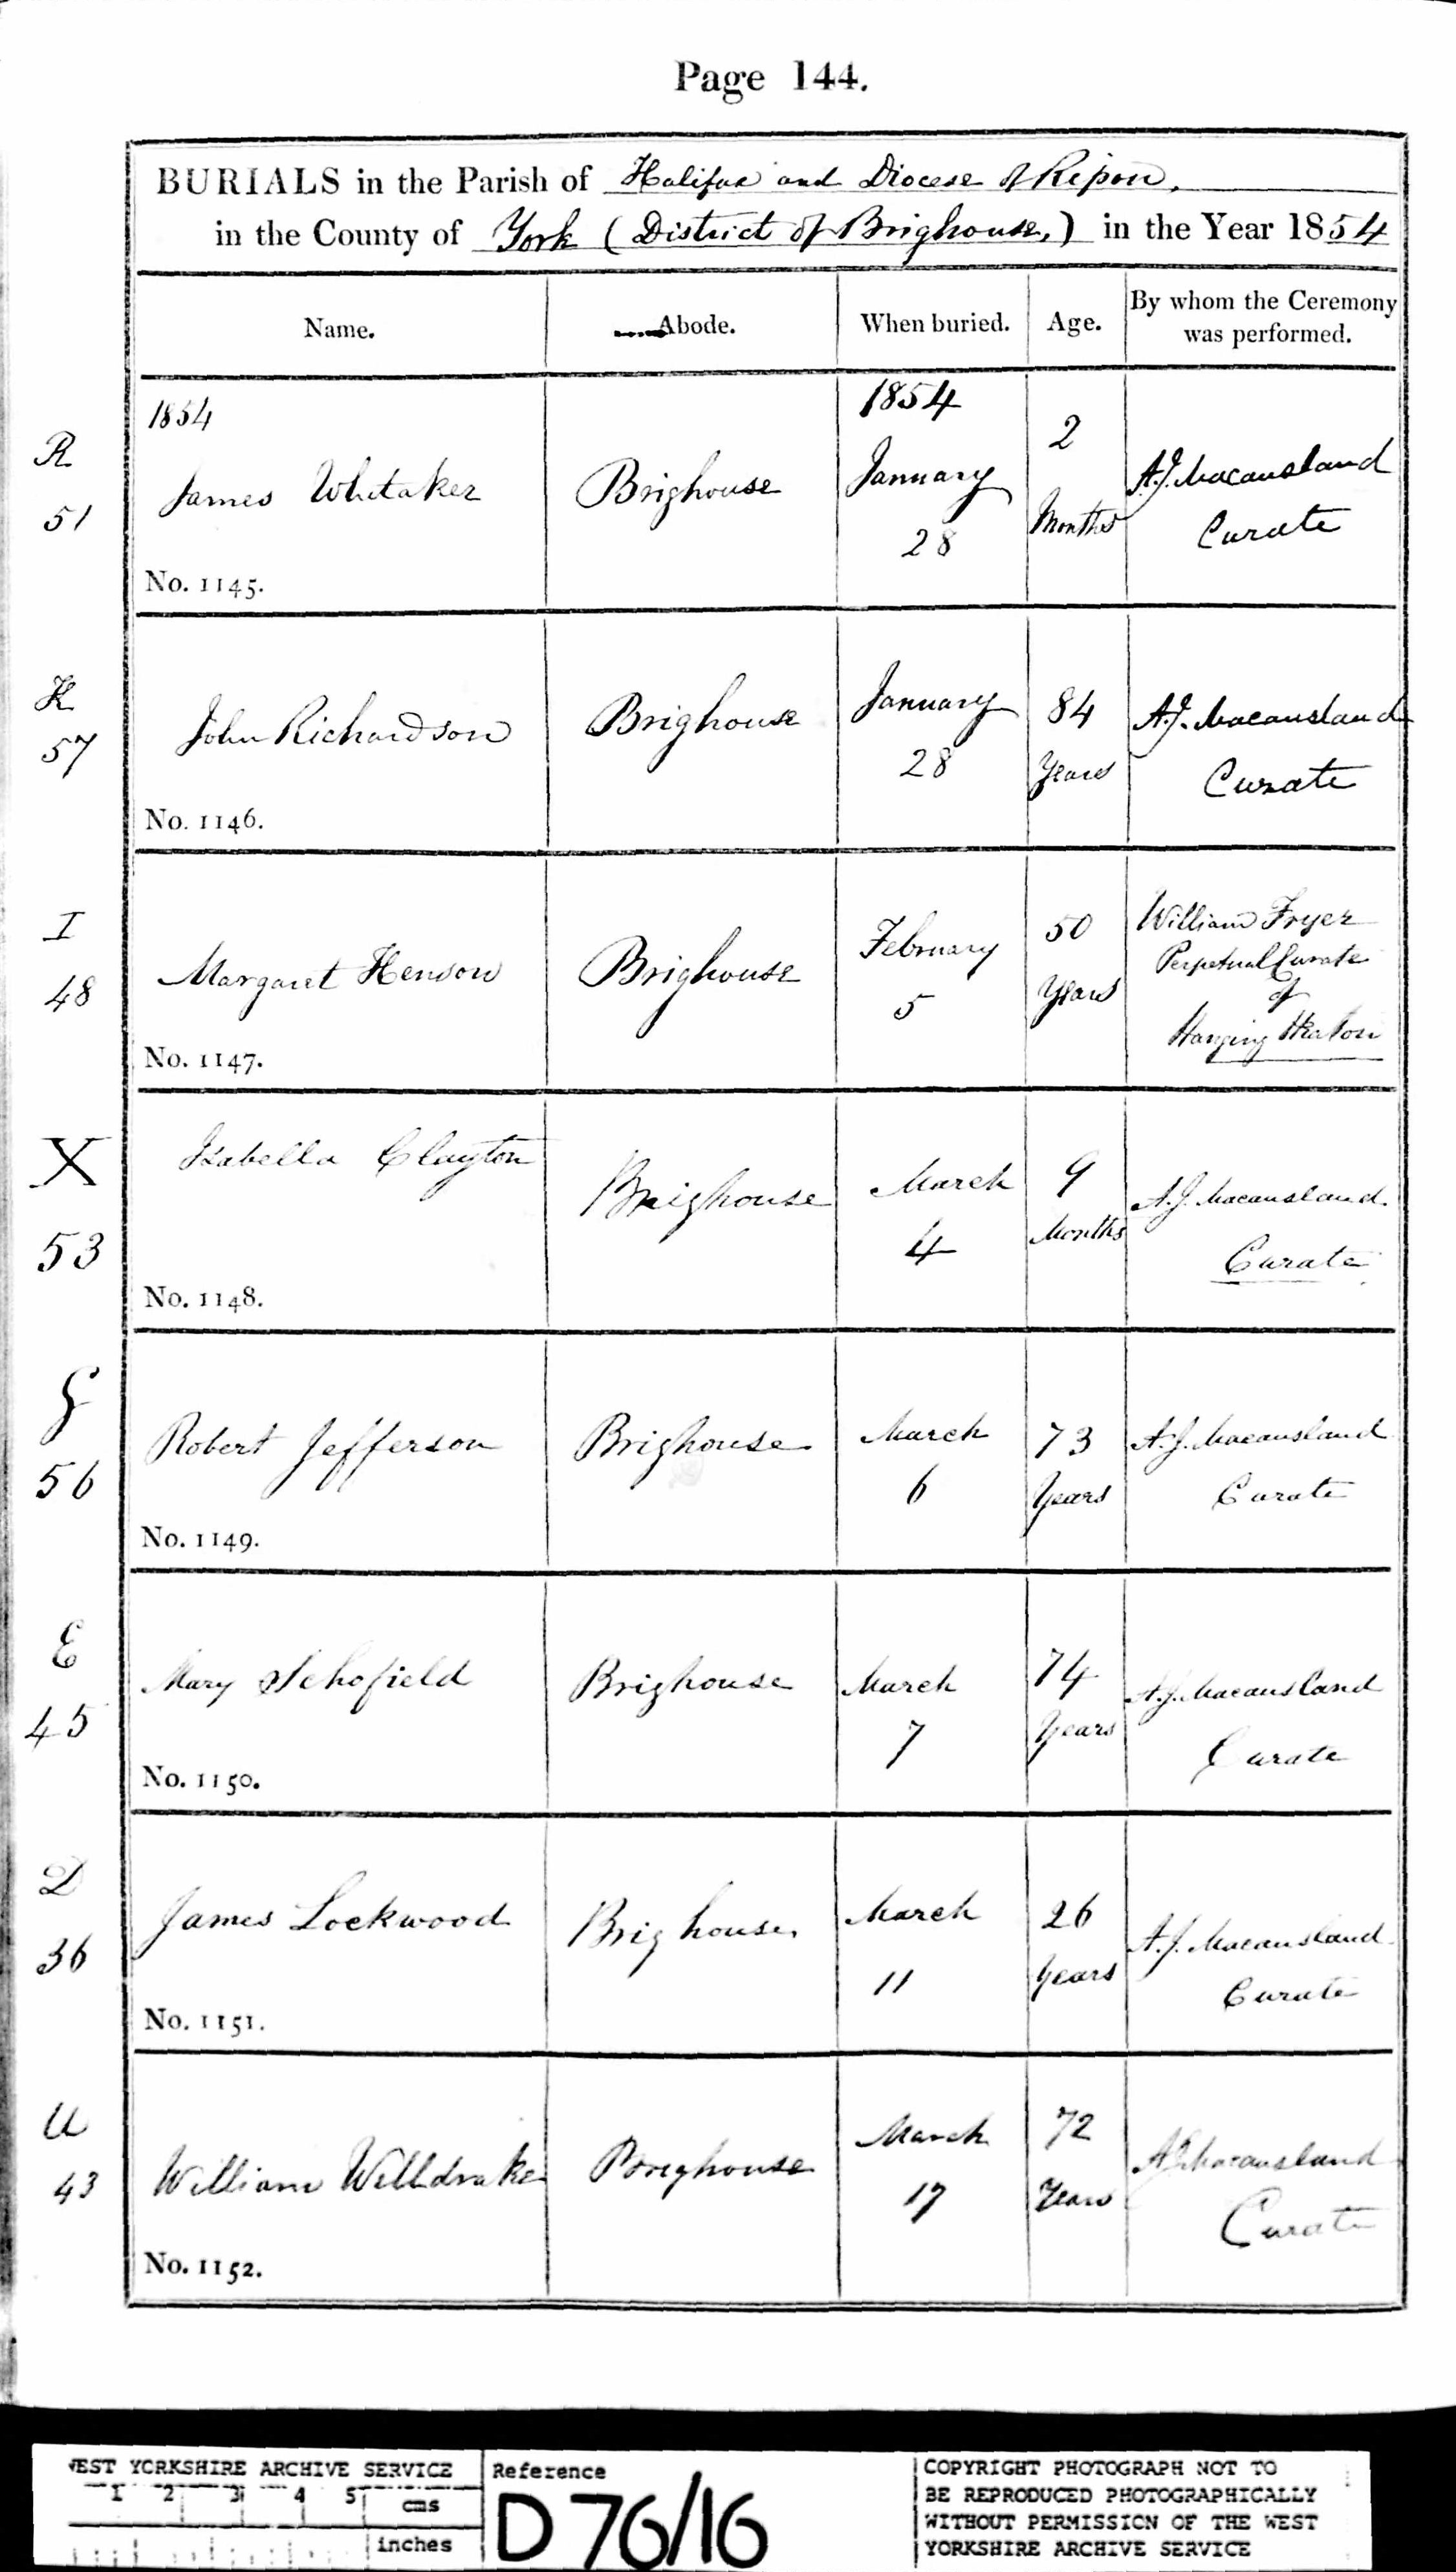 Page 144.
BURIALS in the Parish of Halifax and Diocese of Ripon,
in the County of York (District of Brighouse,) in the Year 1854
Name. Abode. When buried. Age. By whom the Ceremony was performed.
R
51
1854
James Whitaker
No. 1145.
Brighouse
1854
January
28
2
Months
A.J. Macausland
Curate
K
57
John Richardson
No. 1146.
Brighouse
January
28
84
Years
A.J. Macausland
Curate
I
48
Margaret Henson
No. 1147.
Brighouse
February
5
50
Years
William Fryer
Perpetual Curate
of
Hanging Heaton
X
53
Isabella Clayton
No. 1148.
Brighouse
March
4
9
Months
A.J. Macausland.
Curate
56
Robert Jefferson
No. 1149.
Brighouse
March
6
73
Years
A.J. Macausland
Curate
E
45
Mary Schofield
No. 1150.
Brighouse
March
7
74
Years
A.J. Macausland
Curate
D
36
James Lockwood
No. 1151.
Brighouse
March
11
26
Years
A.J. Macausland
Curate
U
43
William Welldrake
No. 1152.
Brighouse
March
17
72
Years
A.J. Macausland
Curate
WEST YORKSHIRE ARCHIVE SERVICE
1 2 3 4 5
cms
inches
Reference
D76/16
COPYRIGHT PHOTOGRAPH NOT TO
BE REPRODUCED PHOTOGRAPHICALLY
WITHOUT PERMISSION OF THE WEST
YORKSHIRE ARCHIVE SERVICE